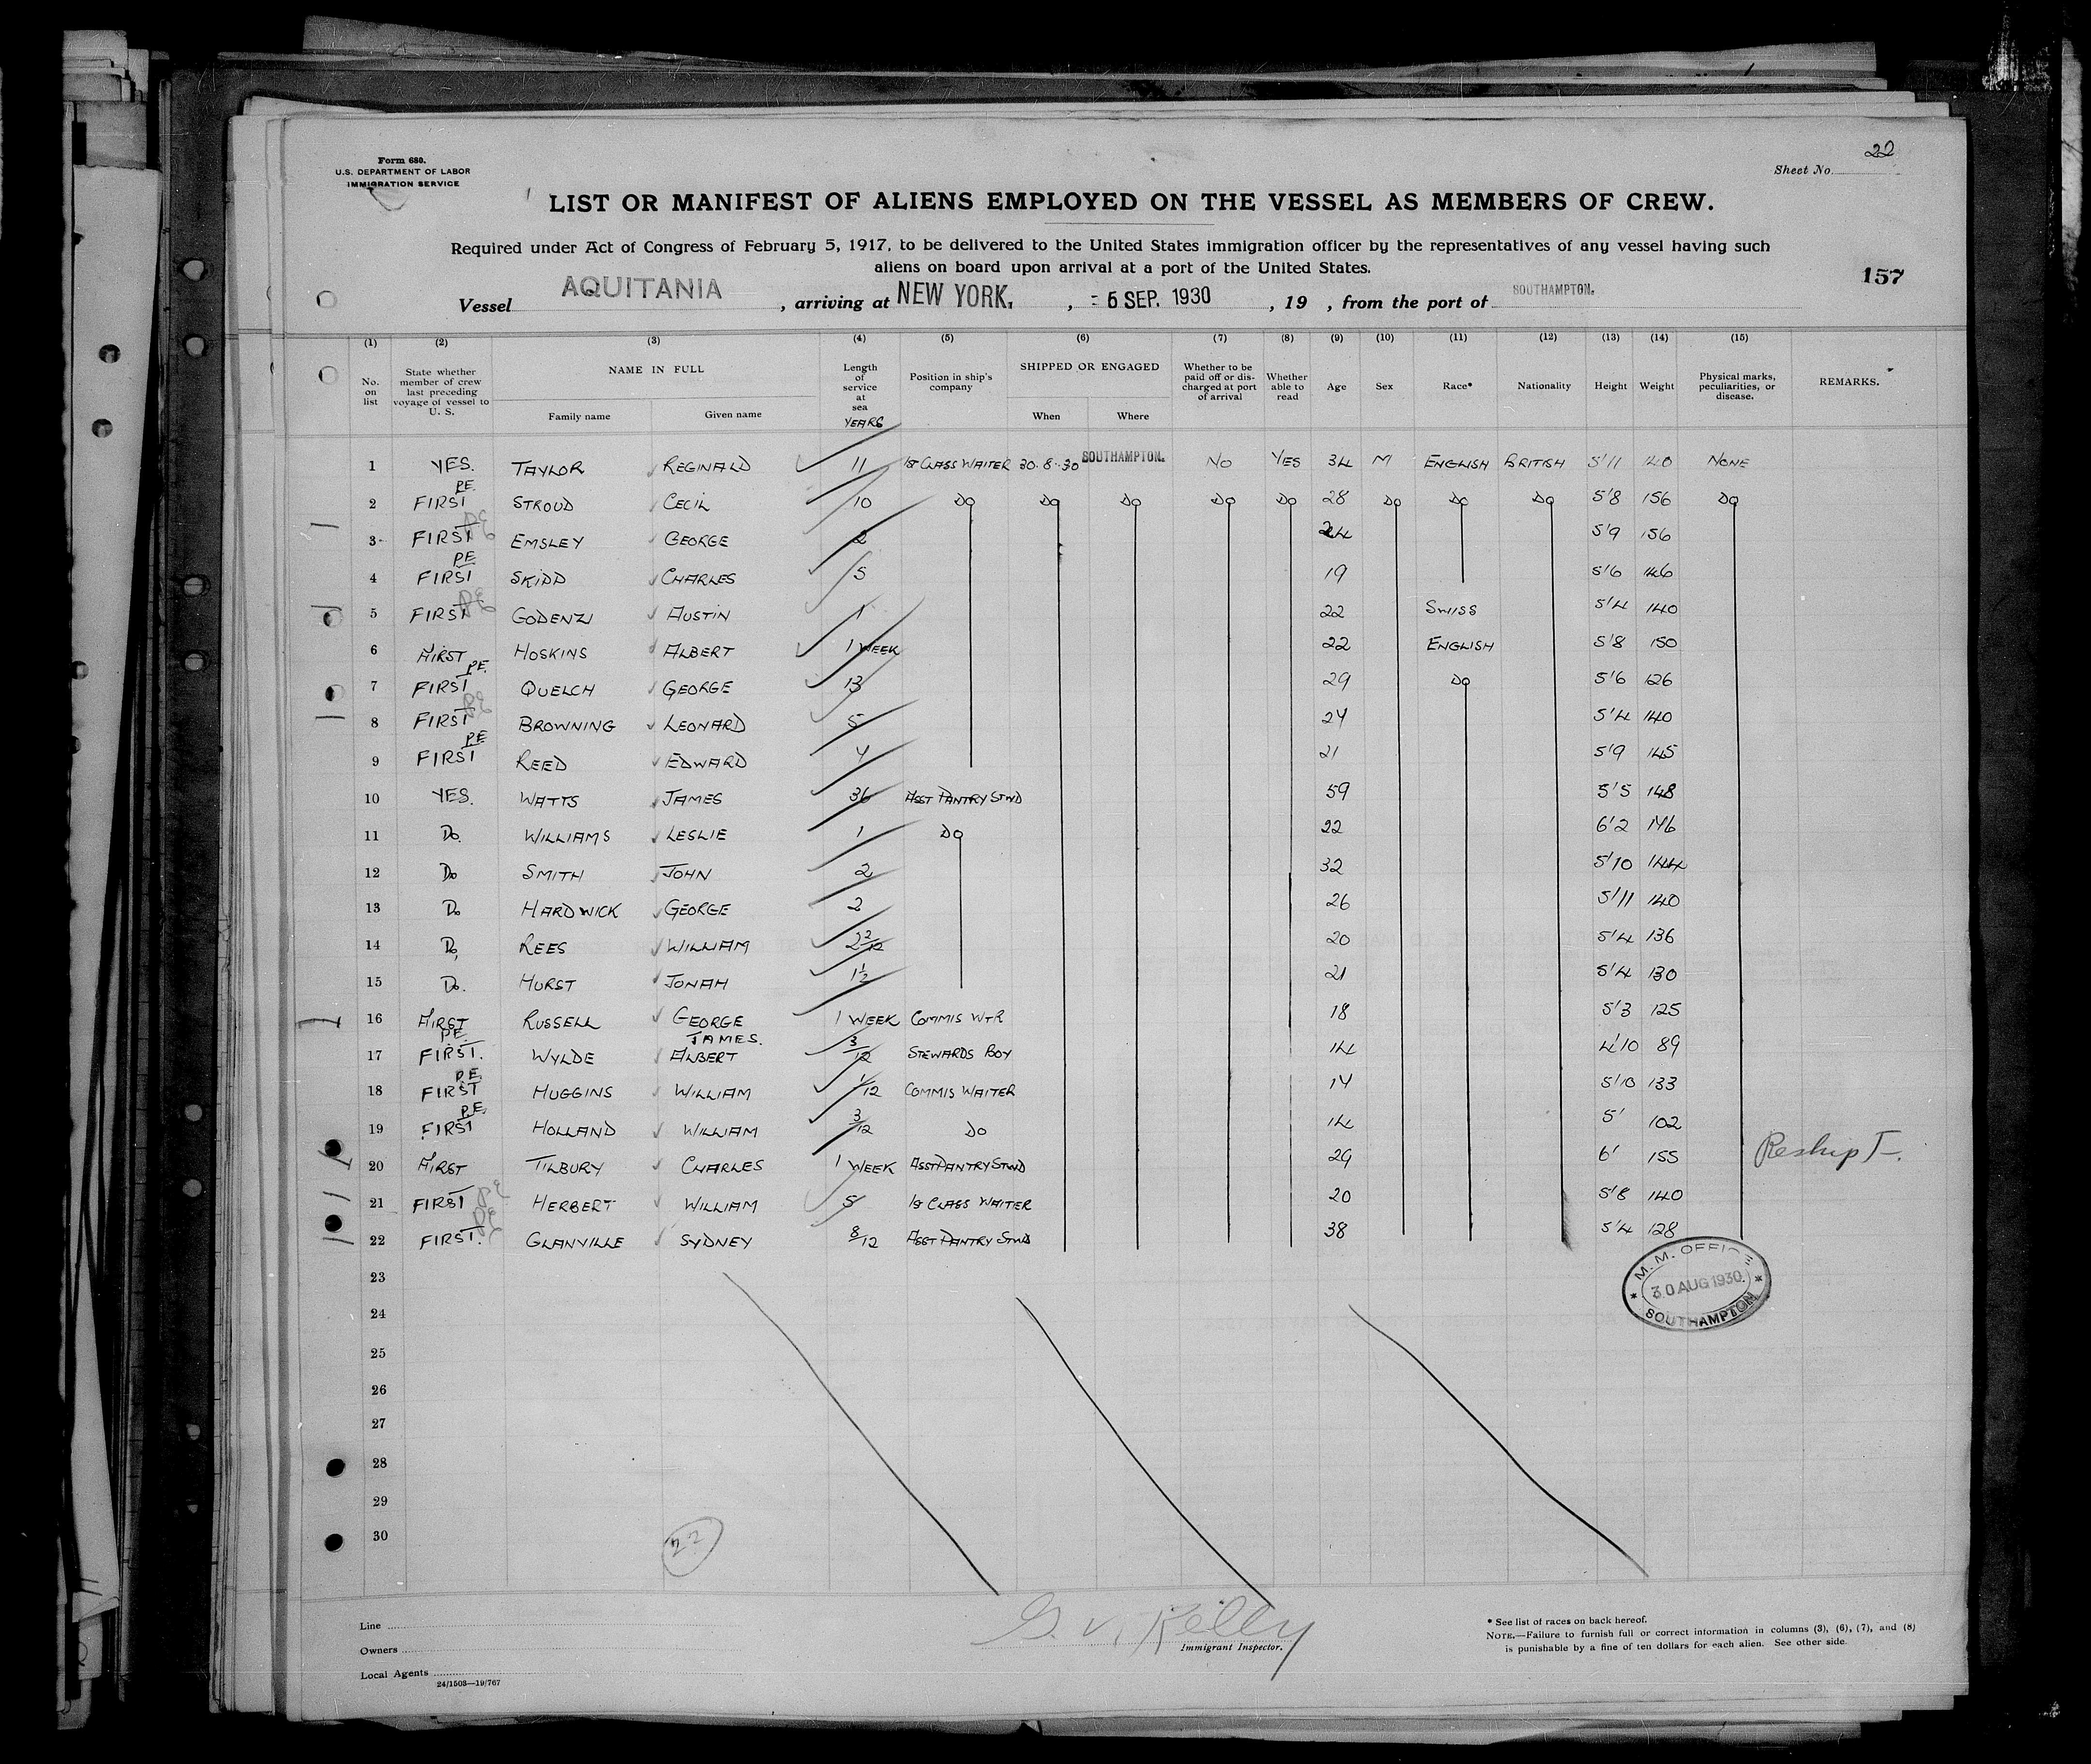 Form 680.
U.S. DEPARTMENT OF LABOR
IMMIGRATION SERVICE
Sheet No. 22
LIST OR MANIFEST OF ALIENS EMPLOYED ON THE VESSEL AS MEMBERS OF CREW.
Required under Act of Congress of February 5, 1917, to be delivered to the United States immigration officer by the representatives of any vessel having such
aliens on board upon arrival at a port of the United States.
157
Vessel AQUITANIA, arriving at NEW YORK, , - 5 SEP. 1930, 19 , from the port of SOUTHAMPTON.
(1) (2) (3) (4) (5) (6) (7) (8) (9) (10) (11) (12) (13) (14) (15)
No. on list State whether member of crew last preceding voyage of vessel to U. S. NAME IN FULL Family name Given name Length of service at sea YEARS Position in ship's company SHIPPED OR ENGAGED When Where Whether to be paid off or discharged at port of arrival Whether able to read Age Sex Race* Nationality Height Weight Physical marks, peculiarities, or disease. REMARKS.
1 YES. TAYLOR REGINALD 11 1st CLASS WAITER 30.8.30 SOUTHAMPTON. NO YES 34 M ENGLISH BRITISH 5'11 140 NONE
2 FIRST PE. STROUD CECIL 10 Do Do Do Do Do 28 Do Do Do 5'8 156 Do
3 FIRST PE EMSLEY GEORGE 2 24 5'9 156
4 FIRST PE SKIDD CHARLES 5 19 5'6 146
5 FIRST PE GODENZI AUSTIN 1 22 SWISS 5'4 140
6 FIRST HOSKINS ALBERT 1 WEEK 22 ENGLISH 5'8 150
7 FIRST PE. QUELCH GEORGE 13 29 Do 5'6 126
8 FIRST PE BROWNING LEONARD 5 24 5'4 140
9 FIRST PE REED EDWARD 4 21 5'9 145
10 YES. WATTS JAMES 36 ASST PANTRY STWD 59 5'5 148
11 Do. WILLIAMS LESLIE 1 Do 22 6'2 146
12 Do SMITH JOHN 2 32 5'10 144
13 Do HARDWICK GEORGE 2 26 5'11 140
14 Do, REES WILLIAM 2 2/12 20 5'4 136
15 Do. HURST JONAH 1 1/2 21 5'4 130
16 FIRST RUSSELL GEORGE 1 WEEK COMMIS WTR 18 5'3 125
17 FIRST. PE. WYLDE ALBERT JAMES. 3/12 STEWARDS BOY 14 4'10 89
18 FIRST PE. HUGGINS WILLIAM 1/12 COMMIS WAITER 14 5'10 133
19 FIRST PE. HOLLAND WILLIAM 3/12 DO 14 5' 102
20 FIRST TILBURY CHARLES 1 WEEK ASST PANTRY STWD 29 6' 155 Reship
21 FIRST PE HERBERT WILLIAM 5 1st CLASS WAITER 20 5'8 140
22 FIRST. PE GLANVILLE SYDNEY 8/12 ASST PANTRY STWD 38 5'4 128
23
24
25
26
27
28
29
30
M. M. OFFICE
30 AUG 1930
SOUTHAMPTON
22
G. V. Kelly
Immigrant Inspector.
Line
Owners
Local Agents
24/1503—19/767
* See list of races on back hereof.
NOTE.—Failure to furnish full or correct information in columns (3), (6), (7), and (8)
is punishable by a fine of ten dollars for each alien. See other side.